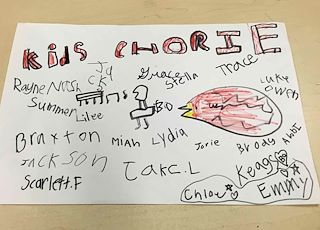 KIDS CHORIE
Rayne Nash Jq CK Grace Stella Trace
Luke
Owen
Summer
Lilee
Braxton Miah Lydia Jorie Brody Abbi
JACKSON Jake.L Keag
Scarlett.F Chloe Emmy